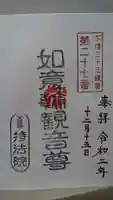 奉拝 令和二年
十二月十五日
第二十七番
如意輪観音尊
持法院